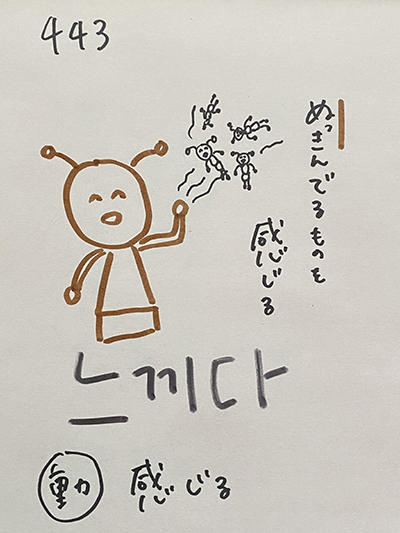 443
ぬっきんでるものを
感じる
느끼다
動 感じる